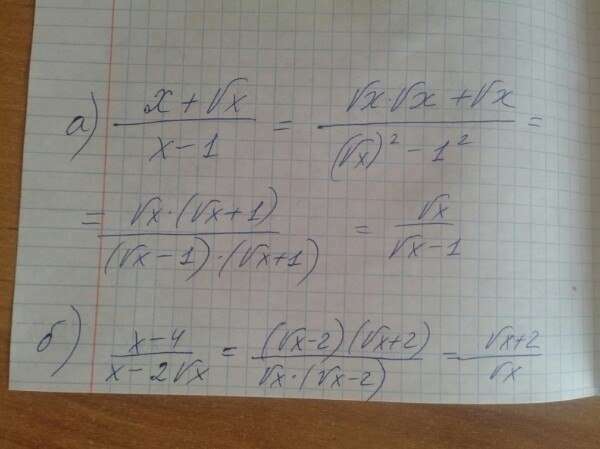 а) (x + √x)/(x - 1) = (√x·√x + √x)/((√x)² - 1²) =
= (√x·(√x+1))/((√x-1)·(√x+1)) = √x/(√x-1)
б) (x-4)/(x-2√x) = ((√x-2)(√x+2))/(√x·(√x-2)) = (√x+2)/√x